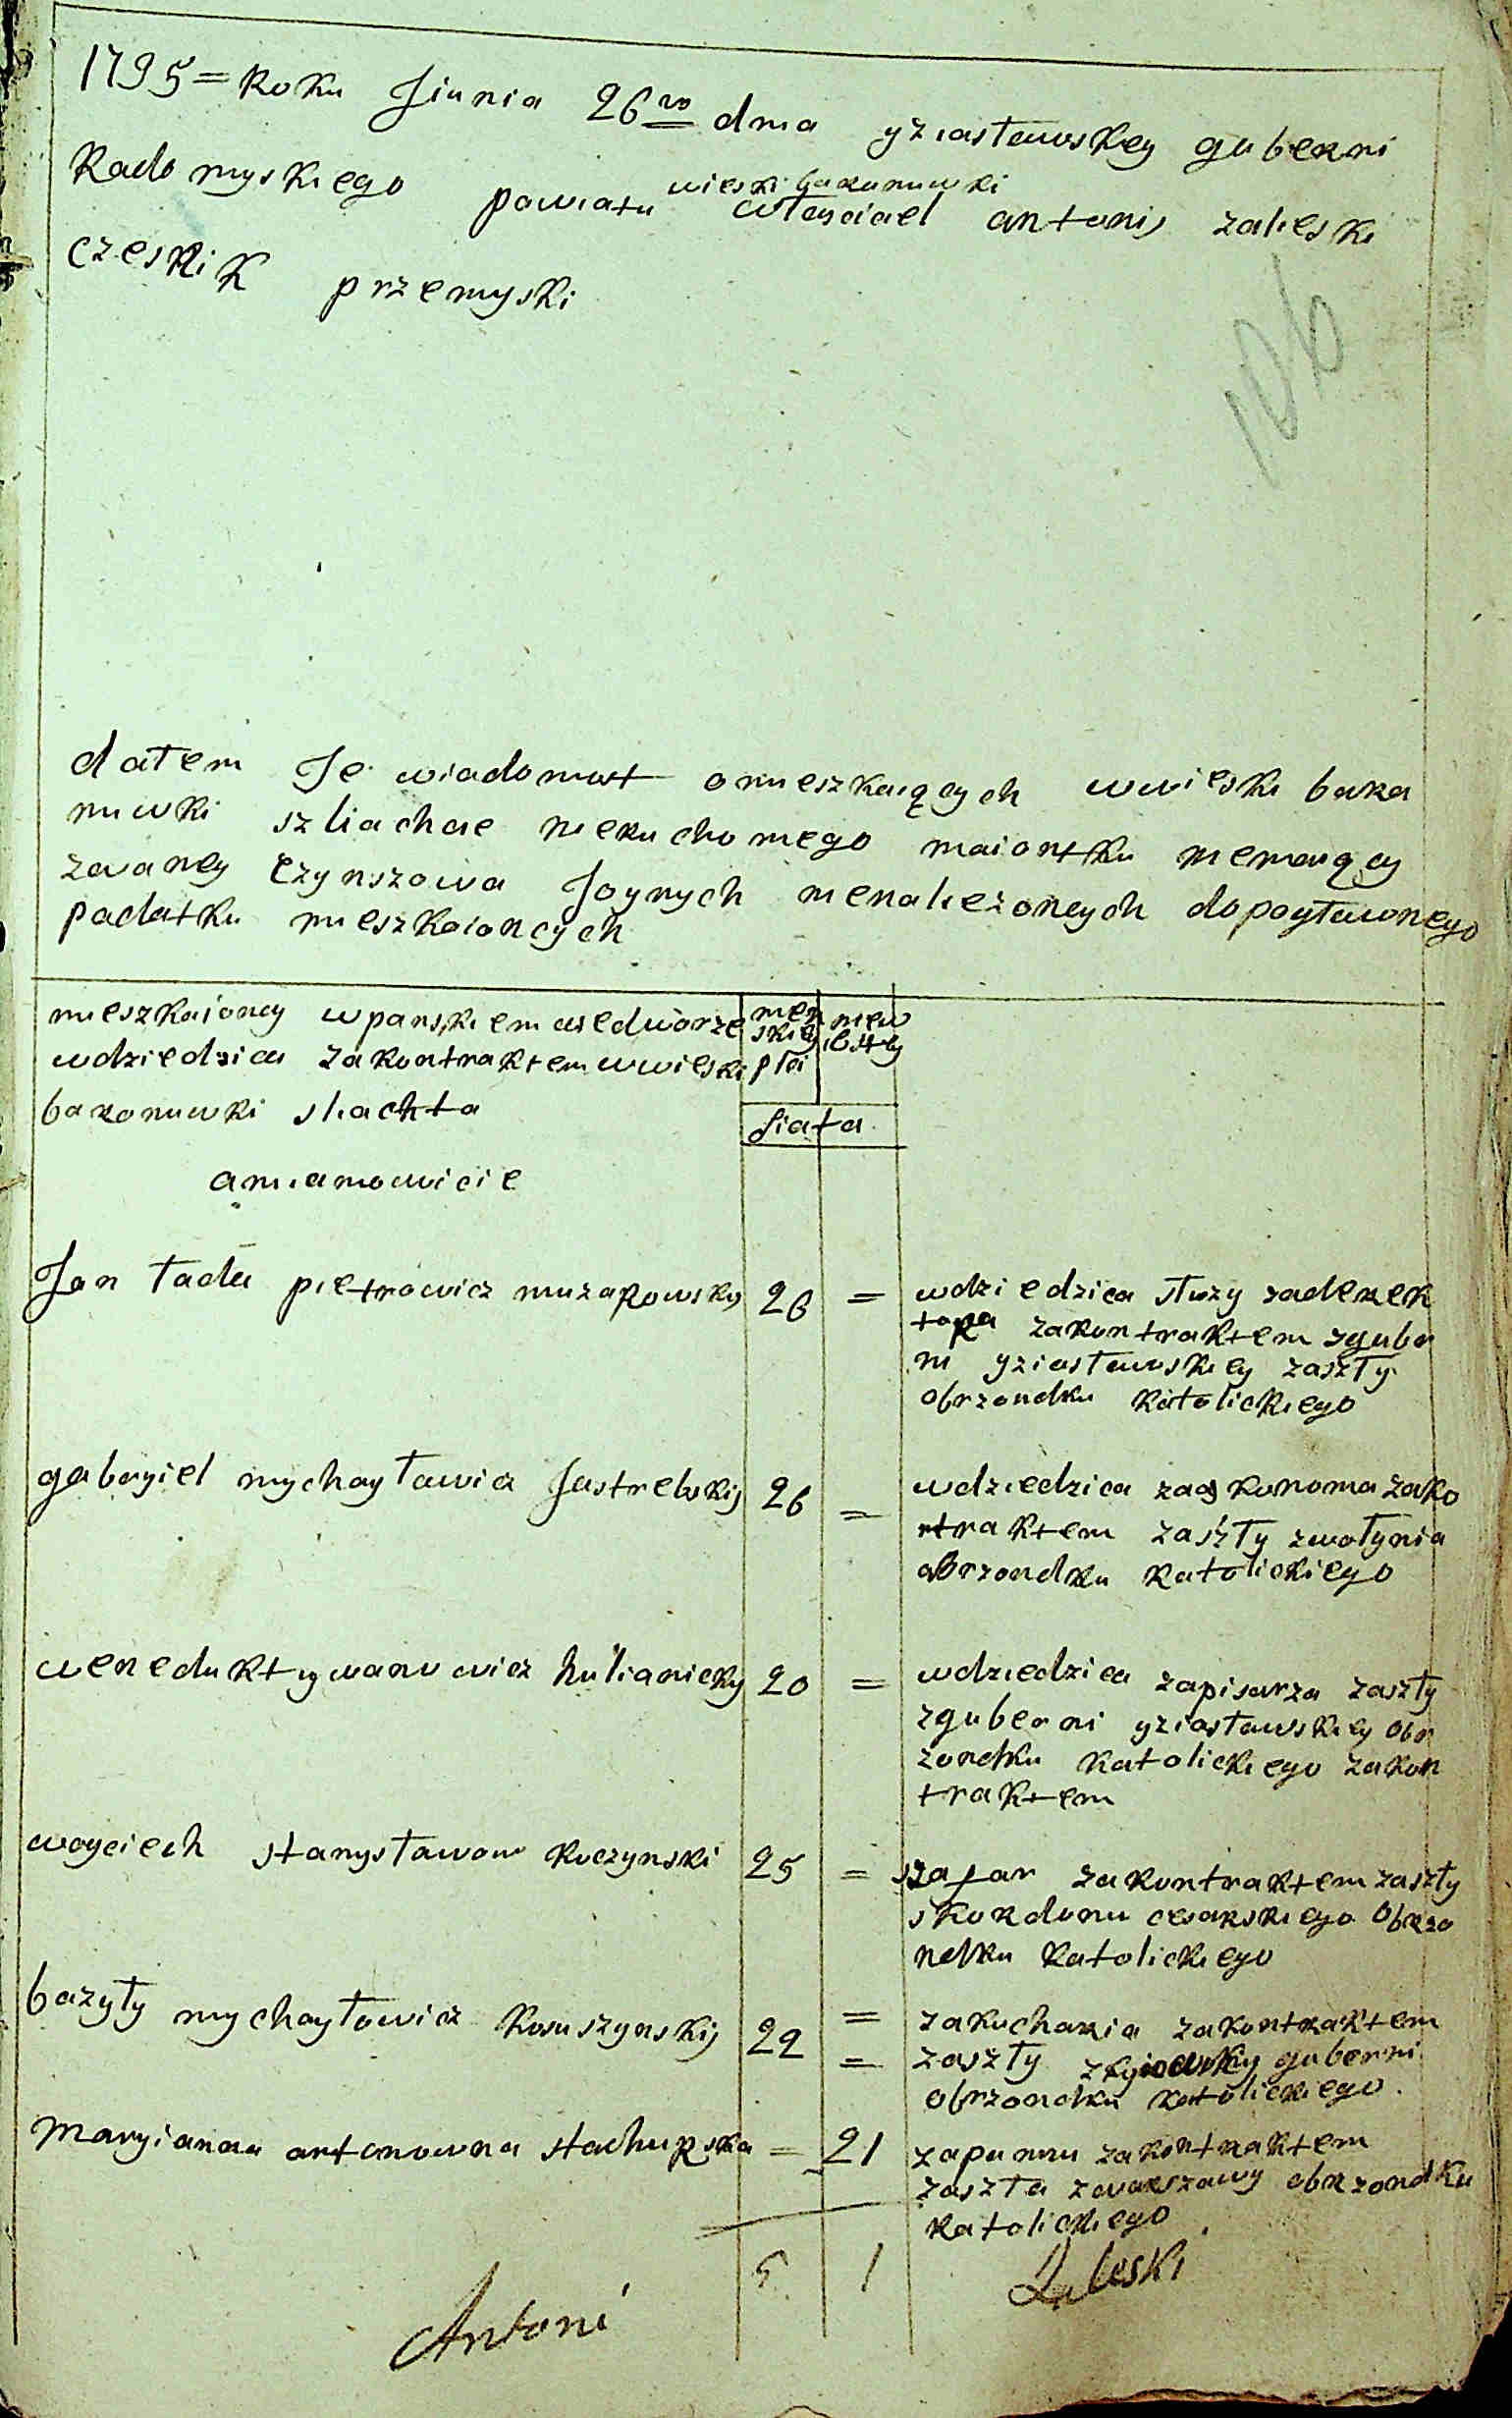 1795 = Roku Jiunia 26 го dnia yziastawskey guberni
Radomyskiego powiatu wieski baranuwki własciael antonij zaleski
czesnik przemyski
106
datem Je wiadomost o mieszkaiących wwieski bara
nuwki szliachcie nieruchomego maiontku niemaiący
zwaney czynszowa Joynych nienaliezoneych dopogławnego
padatku mieszkaioncych
mieszkaioncy wpanskiem dworze
wdziedzica zakontraktem wwieski
baranuwki sliachta
menskiey płci
niewiesty
liata
amianowicie
Jan tadeu pietrowicz muzarowsky 26 =
wdziedzica słuzy zaderek
tora zakontraktem zguber
ni yziastawskiey zaszły
obrzondku katolickiego
gabryiel mychayławicz Jastrebskij 26 =
wdziedzica zaekonoma zako
ntraktem zaszły zwołynia
obrzondku katolickiego
weneduktywanuwicz hulianicky 20 =
wdziedzica zapisarza zaszły
zguberni yziastawskiey obr
zondku katolickiego zakon
traktem
woyciech stanysławow kuczynski 25 =
szafar zakontraktem zaszły
skordonu cesarskiego obrzo
ndku katolickiego
bazyły mychayłowicz kosuszynskij 22 =
= zakucharia zakontraktem
zaszły zkyiowsky guberni
obrzondku katolickiego.
Maryianna antonowna stachurska = 21
zapannu zakontraktem
zaszła zwarszawy obrzondku
katolickiego
5 1
Antoni Zaleski